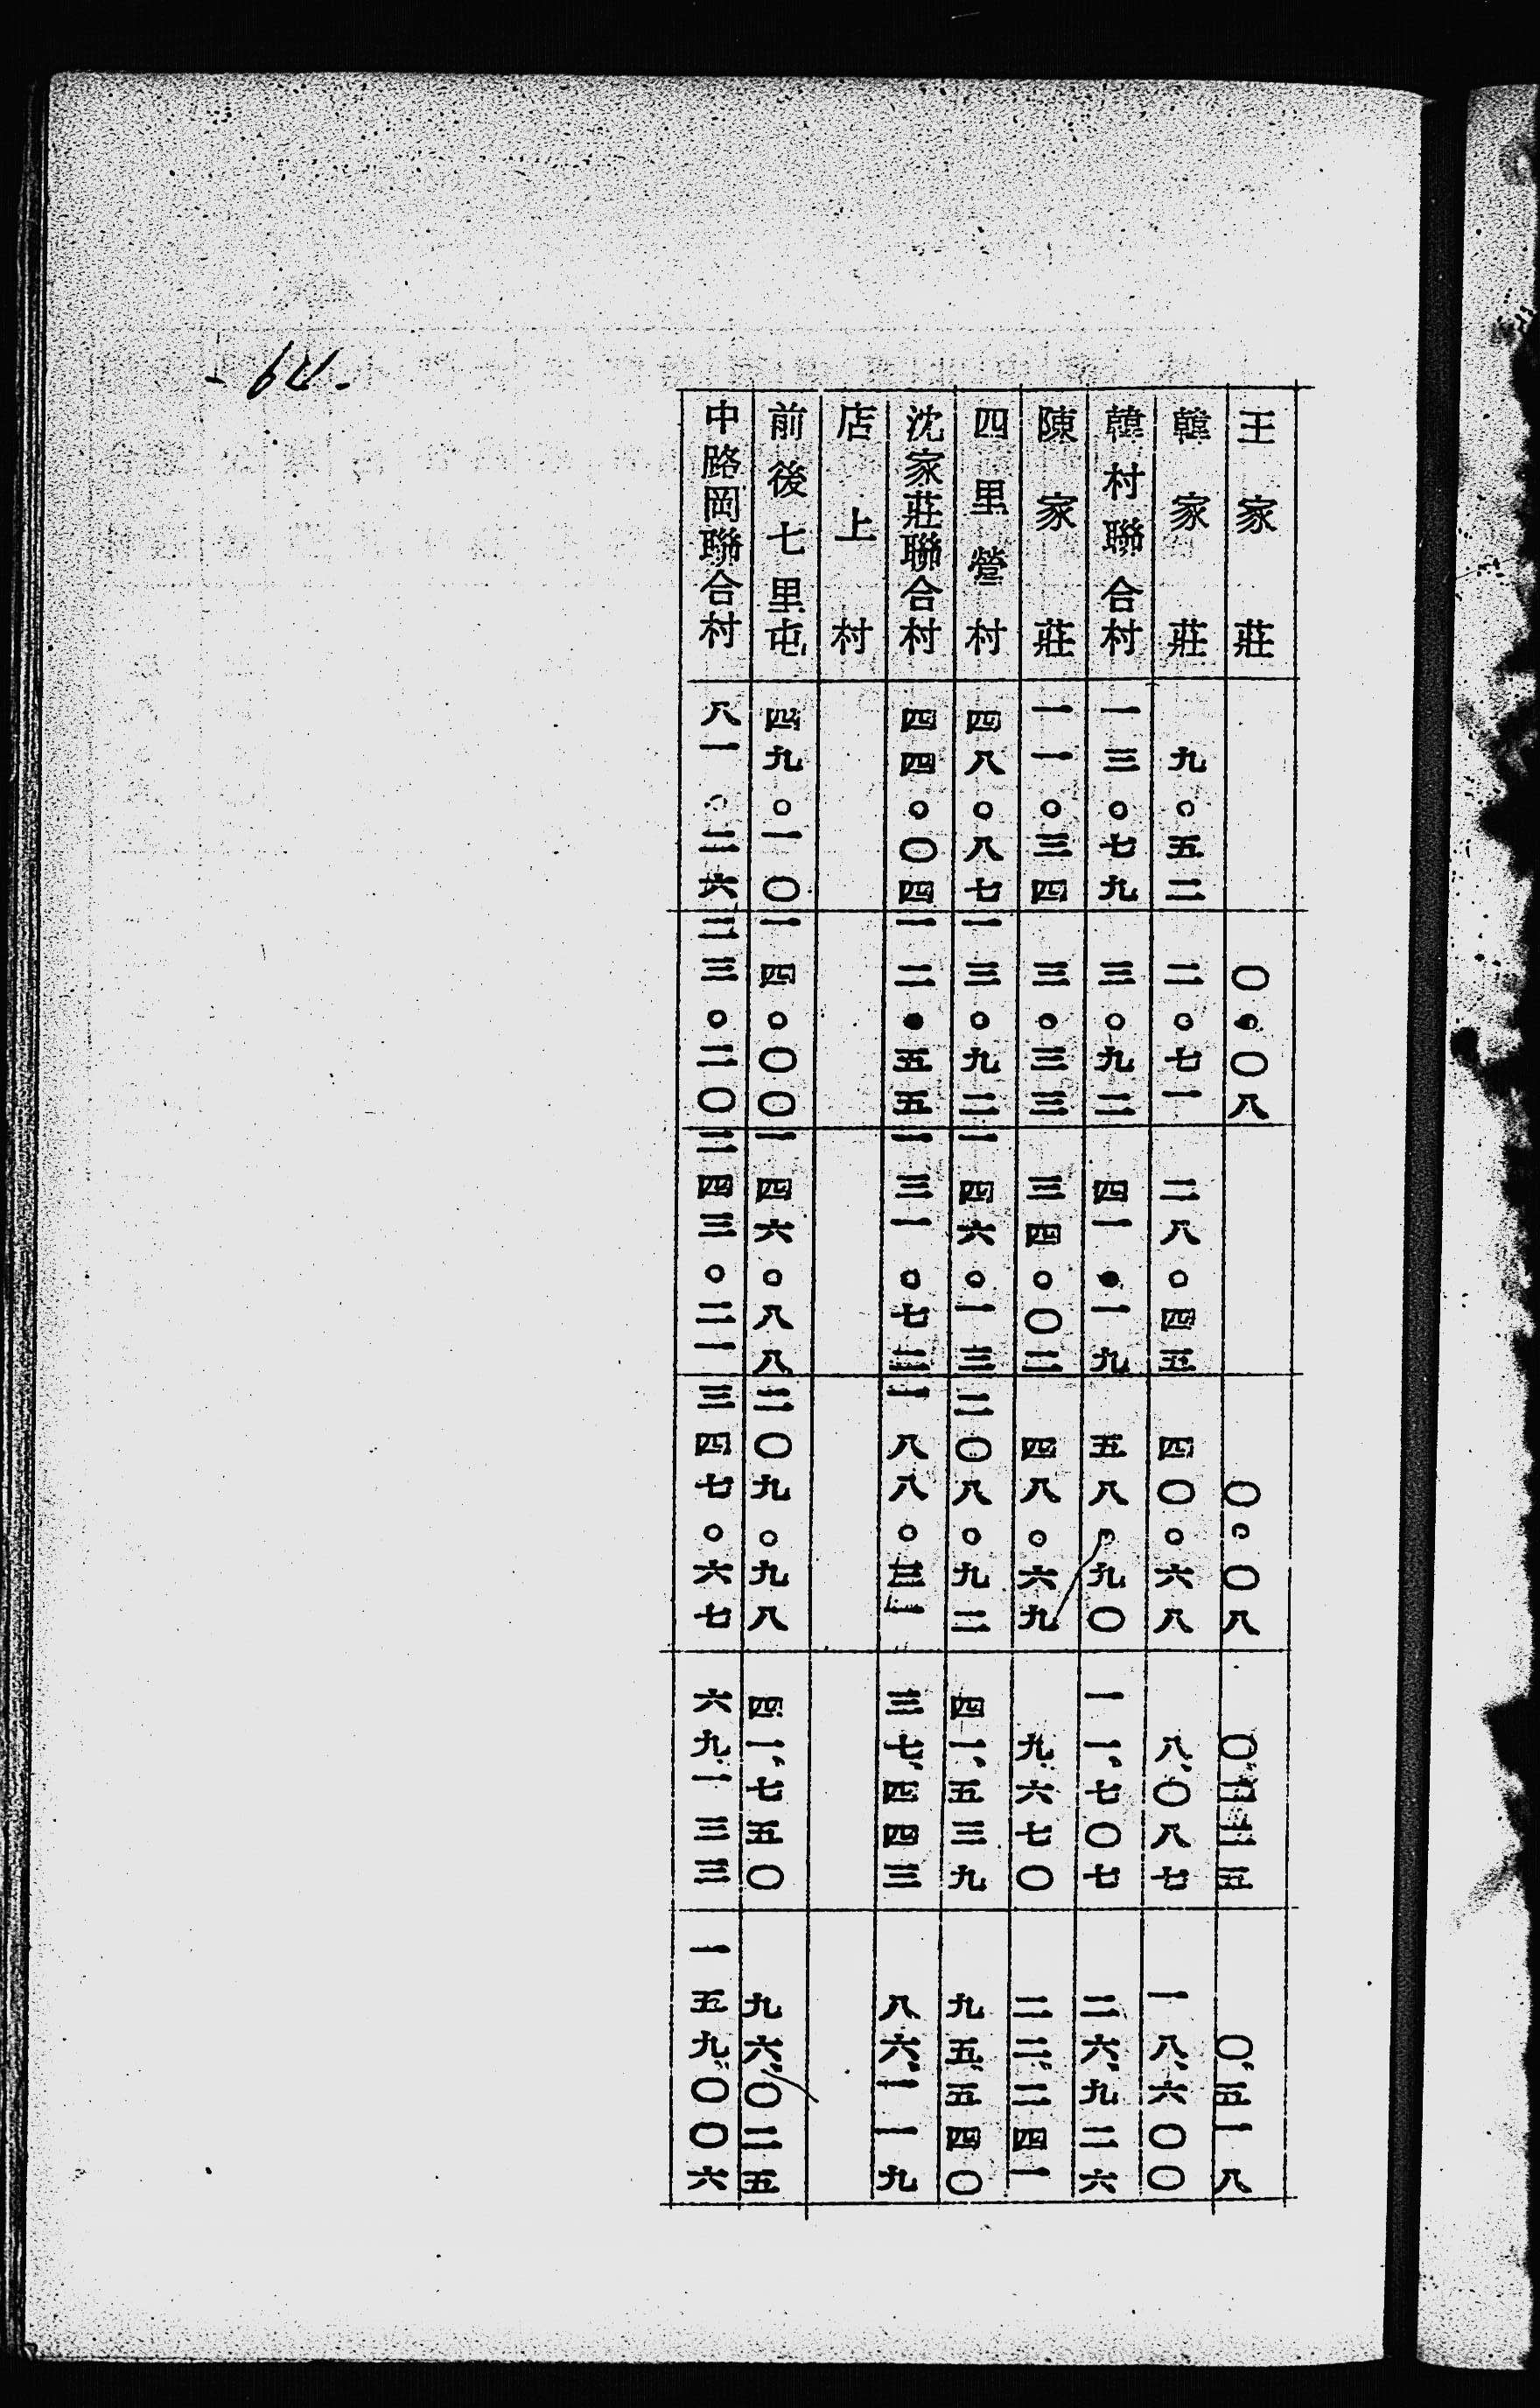 王家莊 〇。〇八 〇。〇八 〇、二二五 〇、五一八
韓家莊 九。五二 二。七一 二八。四五 四〇。六八 八、〇八七 一八、六〇〇
韓村聯合村 一三。七九 三。九二 四一。一九 五八。九〇 一一、七〇七 二六、九二六
陳家莊 一一。三四 三。三三 三四。〇二 四八。六九 九、六七〇 二二、二四一
四里營村 四八。八七 一三。九二 一四六。一三 二〇八。九二 四一、五三九 九五、五四〇
沈家莊聯合村 四四。〇四 一二。五五 一三一。七二 一八八。三一 三七、四四三 八六、一一九
店上村
前後七里屯 四九。一〇 一四。〇〇 一四六。八八 二〇九。九八 四一、七五〇 九六、〇二五
中路岡聯合村 八一。二六 二三。二〇 二四三。二一 三四七。六七 六九、一三三 一五九、〇〇六
-64-